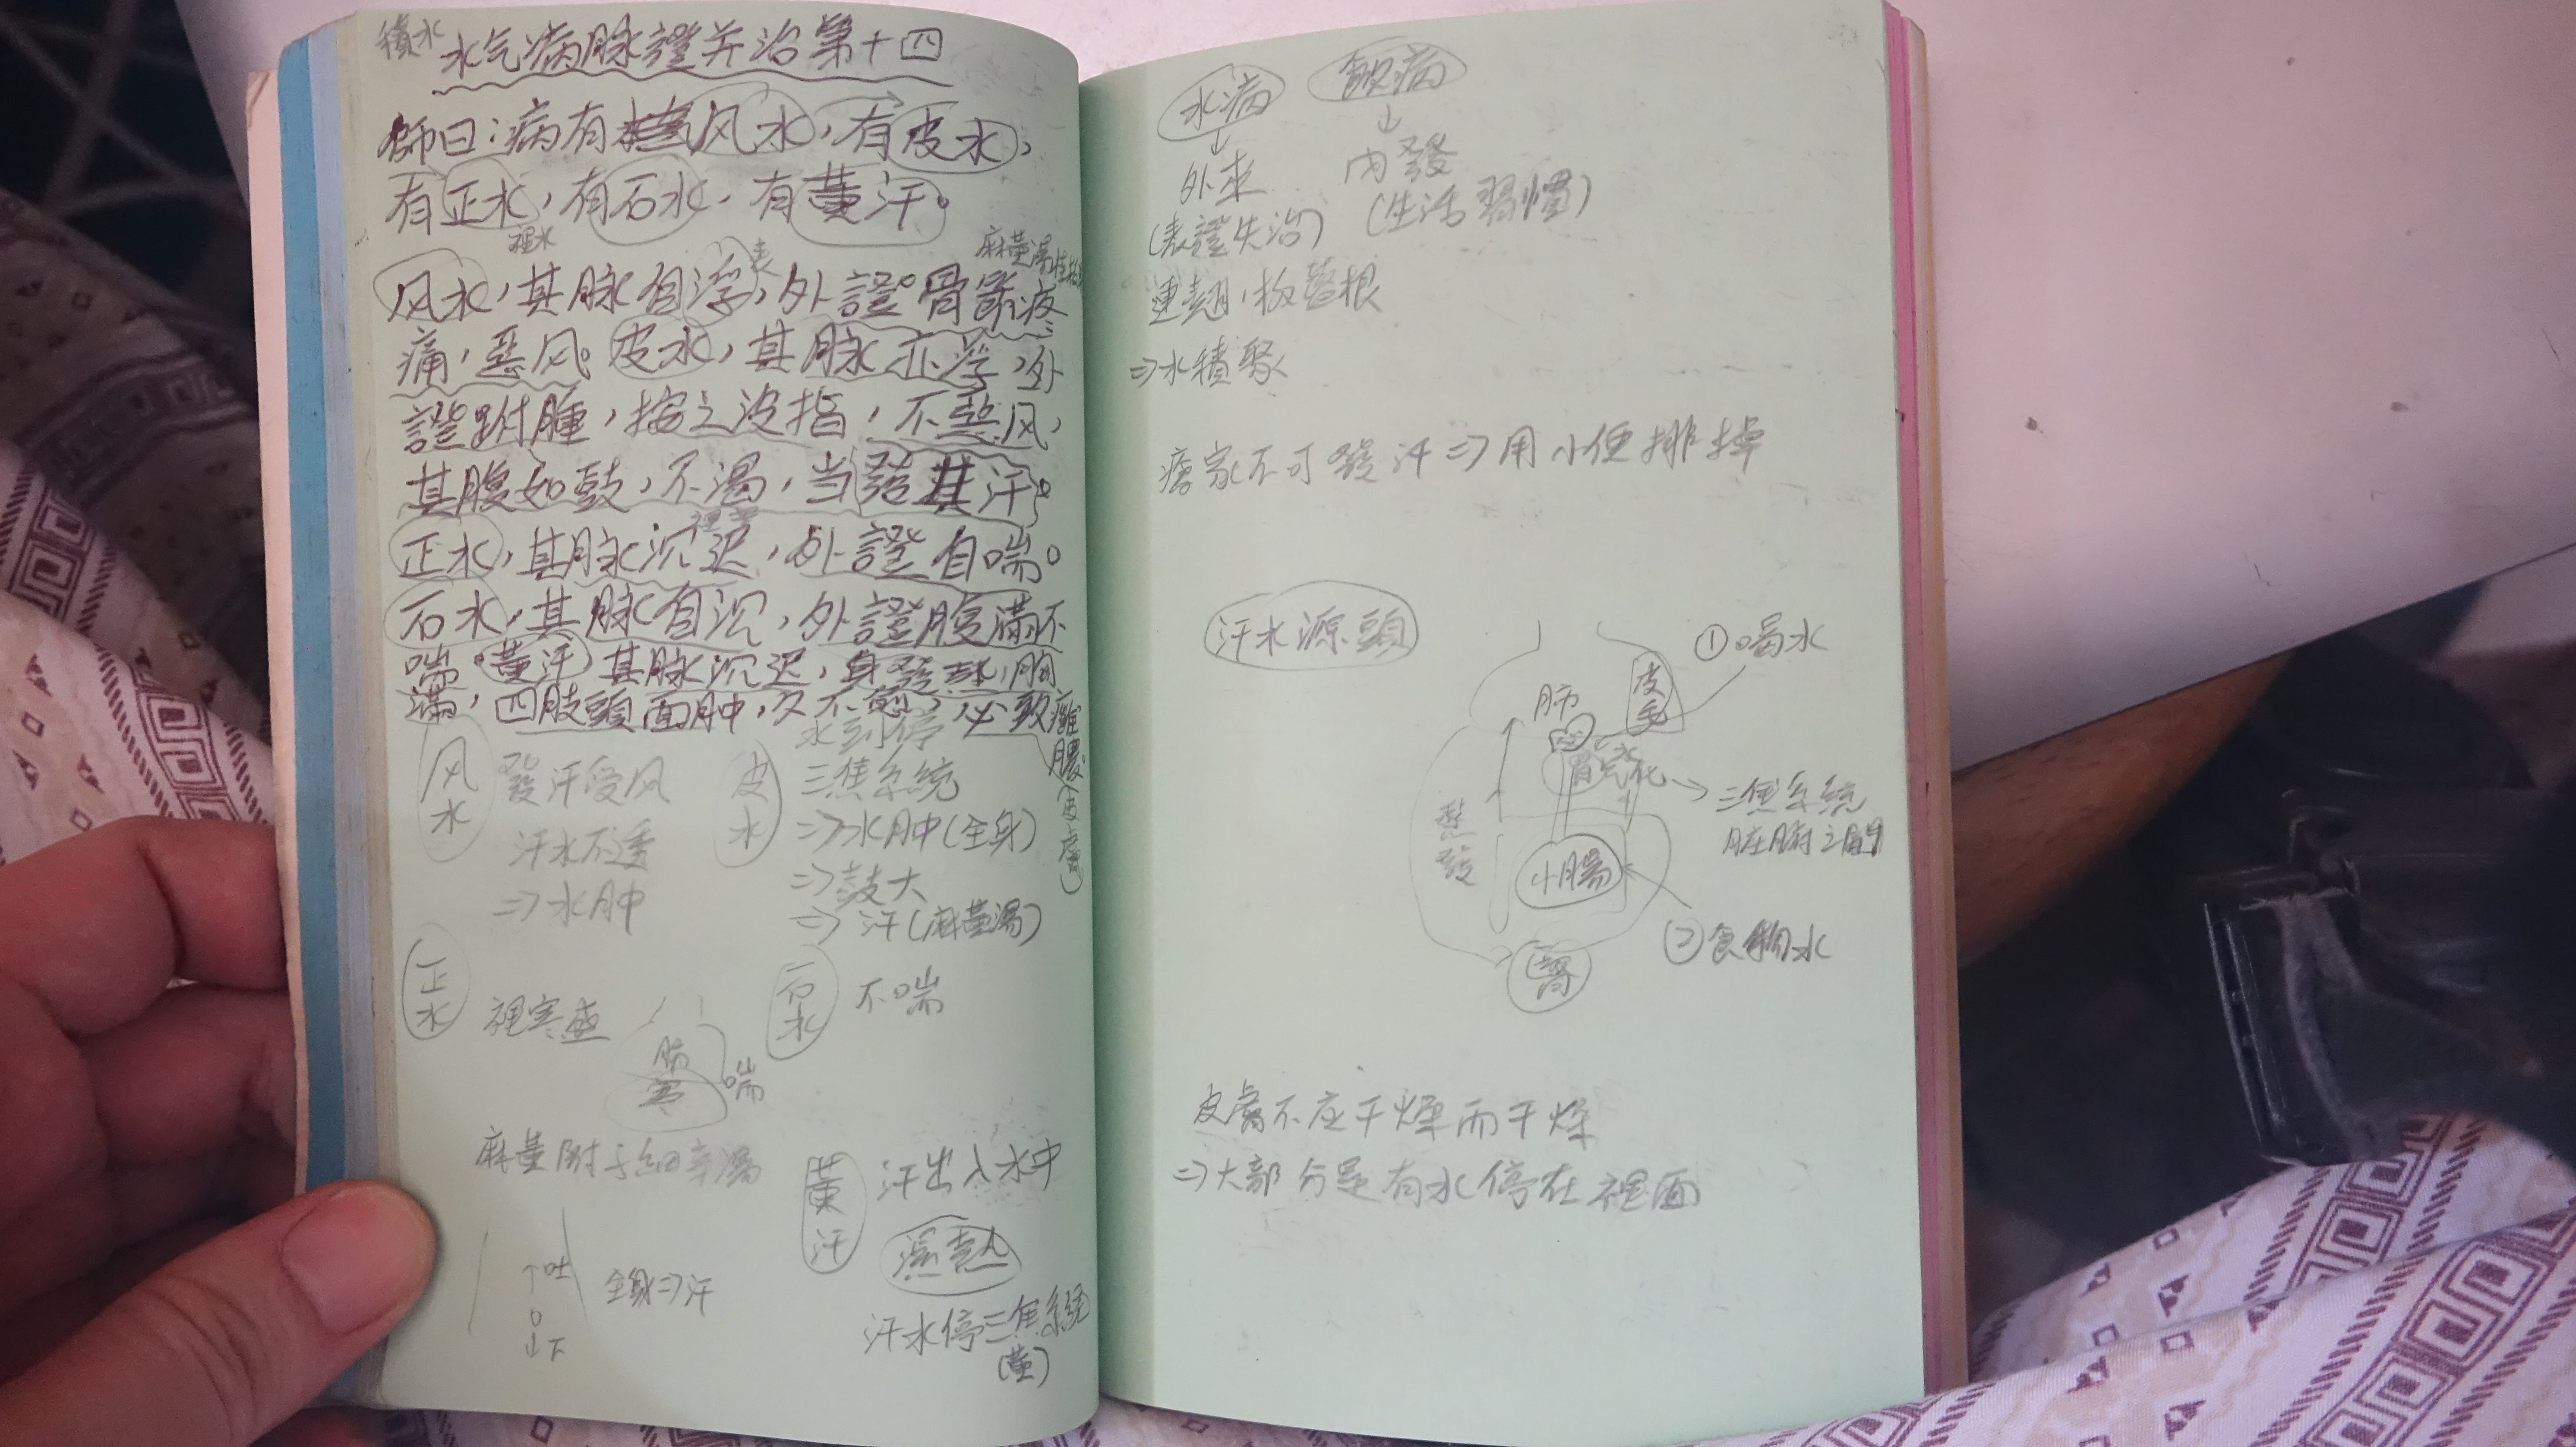 積水
水气病脉證并治第十四
師曰：病有风水，有皮水，
有正水，有石水，有黃汗。
裡水
表
麻黃湯
风水，其脉自浮，外證骨節疼
痛，惡风。皮水，其脉亦浮，外
證跗腫，按之没指，不惡风，
其腹如鼓，不渴，当發其汗。
裡寒
正水，其脉沉迟，外證自喘。
石水，其脉自沉，外證腹滿不
喘。黃汗，其脉沉迟，身發熱，胸
滿，四肢頭面肿，久不愈，必致癰
膿。
(皮膚)
风水
發汗受风
汗水不透
⇒水肿
皮水
水到停
三焦系統
⇒水肿(全身)
⇒鼓大
⇒汗(麻黃湯)
正水
裡寒盛
肺
寒
喘
石水
不喘
麻黃附子細辛湯
↑吐
↓下
全身⇒汗
黃汗
汗出入水中
濕熱
汗水停三焦系統
(黃)
水病
↓
外來
(表證失治)
飲病
↓
内發
(生活習慣)
連翹，板藍根
⇒水積聚
瘡家不可發汗⇒用小便排掉
汗水源頭
①喝水
皮毛
肺
心
胃
气化
→三焦系統
脏腑之間
蒸發
小腸
②食物水
腎
皮膚不应干燥而干燥
⇒大部分是有水停在裡面